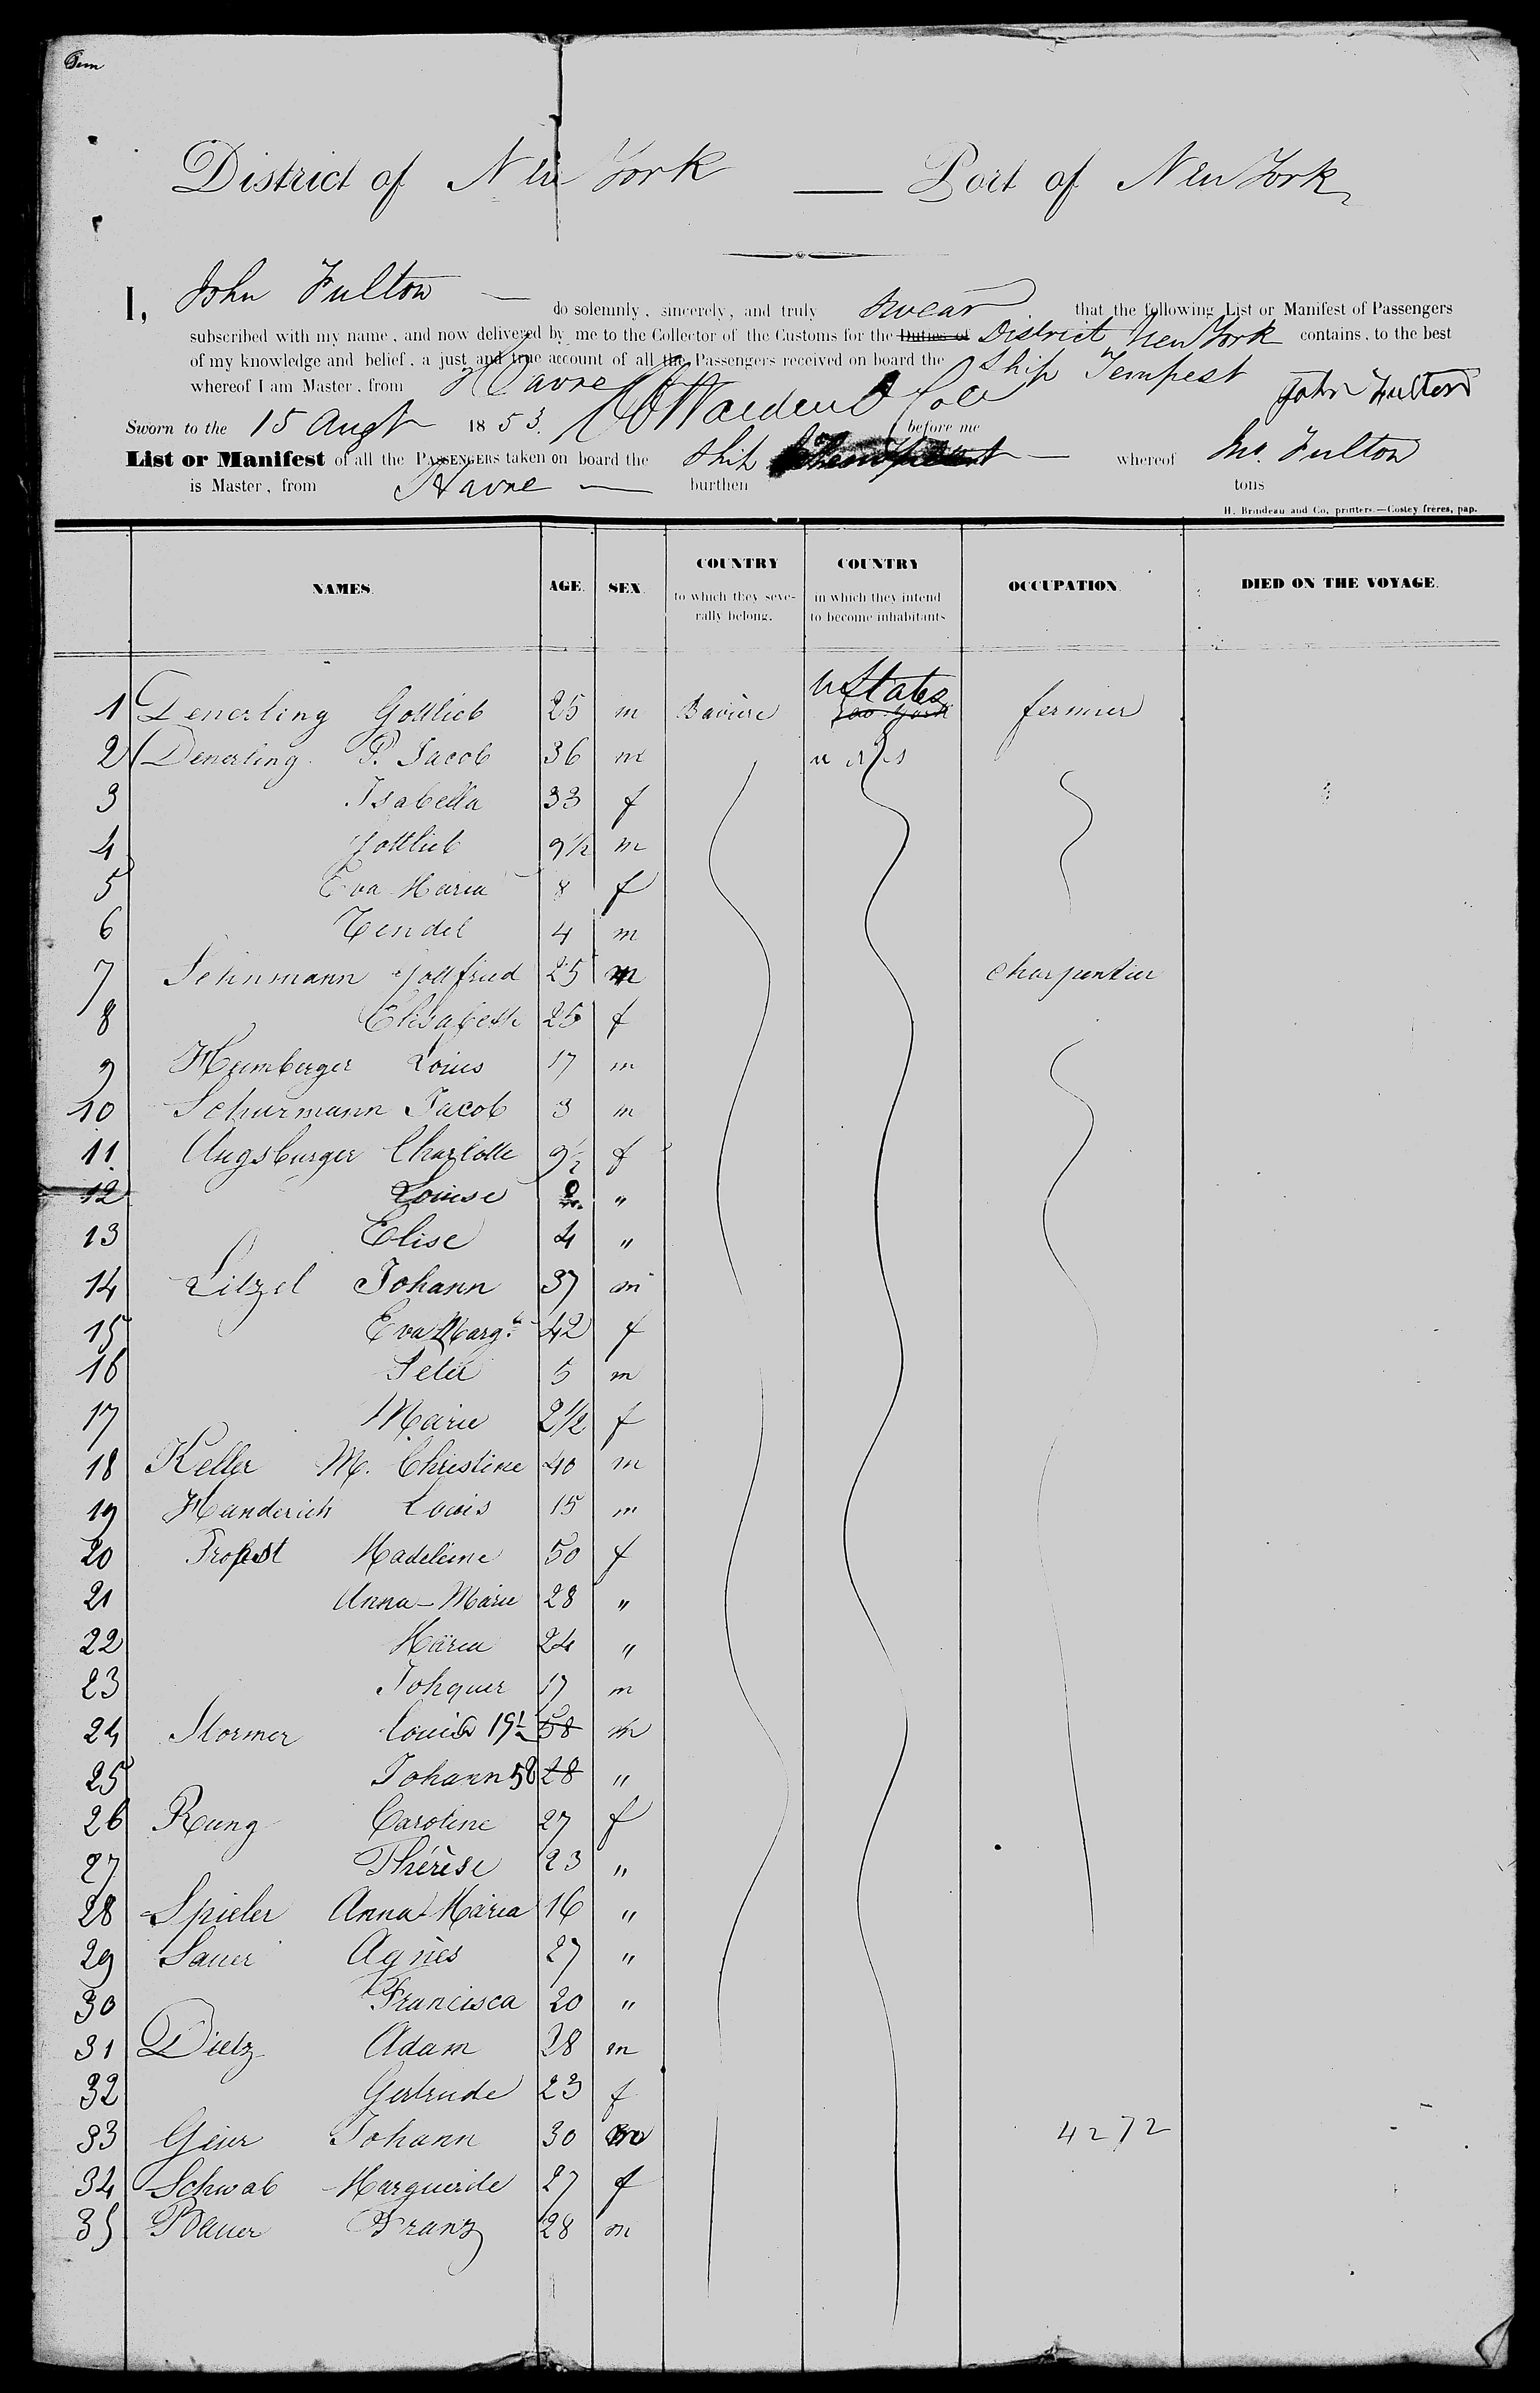 Tem
District of New York — Port of New York
I, John Fulton — do solemnly, sincerely, and truly swear that the following List or Manifest of Passengers
subscribed with my name, and now delivered by me to the Collector of the Customs for the Duties of District New York contains, to the best
of my knowledge and belief, a just and true account of all the Passengers received on board the Ship Tempest
whereof I am Master, from Havre John Fulton
Sworn to the 15 Augt 1853. before me
List or Manifest of all the PASSENGERS taken on board the Ship — whereof Jno. Fulton
is Master, from Havre — burthen tons
H. Brindeau and Co, printers.—Costey frères, pap.
NAMES. AGE. SEX. COUNTRY to which they severally belong. COUNTRY in which they intend to become inhabitants OCCUPATION. DIED ON THE VOYAGE.
1 Denerling Gottlieb 25 m Bavière U States New York fermier
2 Denerling P. Jacob 36 m
3 Isabella 33 f
4 Gottlieb 9 1/2 m
5 Eva Maria 8 f
6 Tendel 4 m
7 Gottfried 25 m charpentier
8 Elisabeth 25 f
9 Humberger Louis 17 m
10 Schurmann Jacob 3 m
11 Augsburger Charlotte 9 1/2 f
12 Louise "
13 Elise 4 "
14 Litzel Johann 37 m
15 Eva Margte 42 f
16 Peter 5 m
17 Marie 2 1/2 f
18 Keller M. Christine 40 m
19 Hunderich Louis 15 m
20 Probst Madeleine 50 f
21 Anna-Marie 28 "
22 Maria 24 "
23 17 m
24 Stormer Louis 19 1/2 58 m
25 Johann 58 28 "
26 Rung Caroline 27 f
27 Thérèse 23 "
28 Spieler Anna Maria 16 "
29 Sauer Agnès 27 "
30 Francisca 20 "
31 Dietz Adam 28 m
32 Gertrude 23 f
33 Geier Johann 30 m 4272
34 Schwab Marguerite 27 f
35 Bauer Franz 28 m